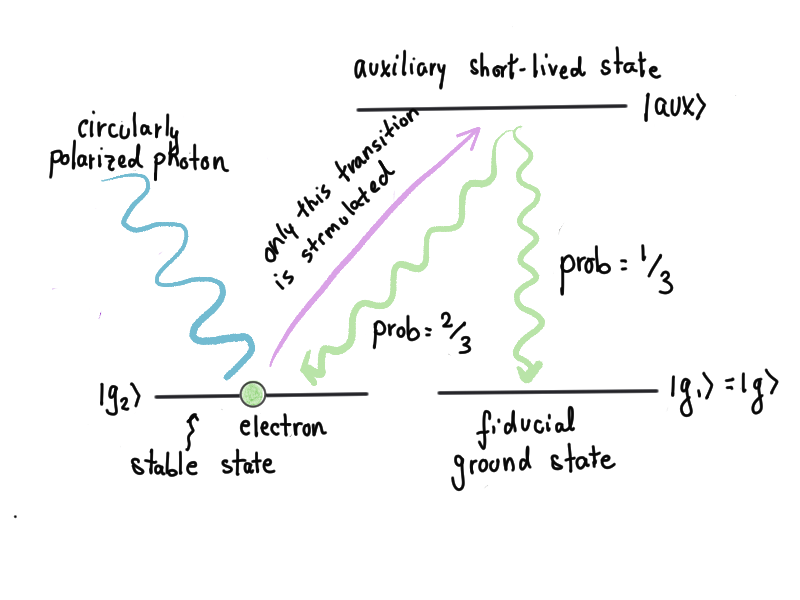 auxiliary short-lived state
|aux⟩
circularly
polarized photon
only this transition
is stimulated
prob = 2/3
prob = 1/3
|g₂⟩
electron
stable state
|g₁⟩ = |g⟩
fiducial
ground state